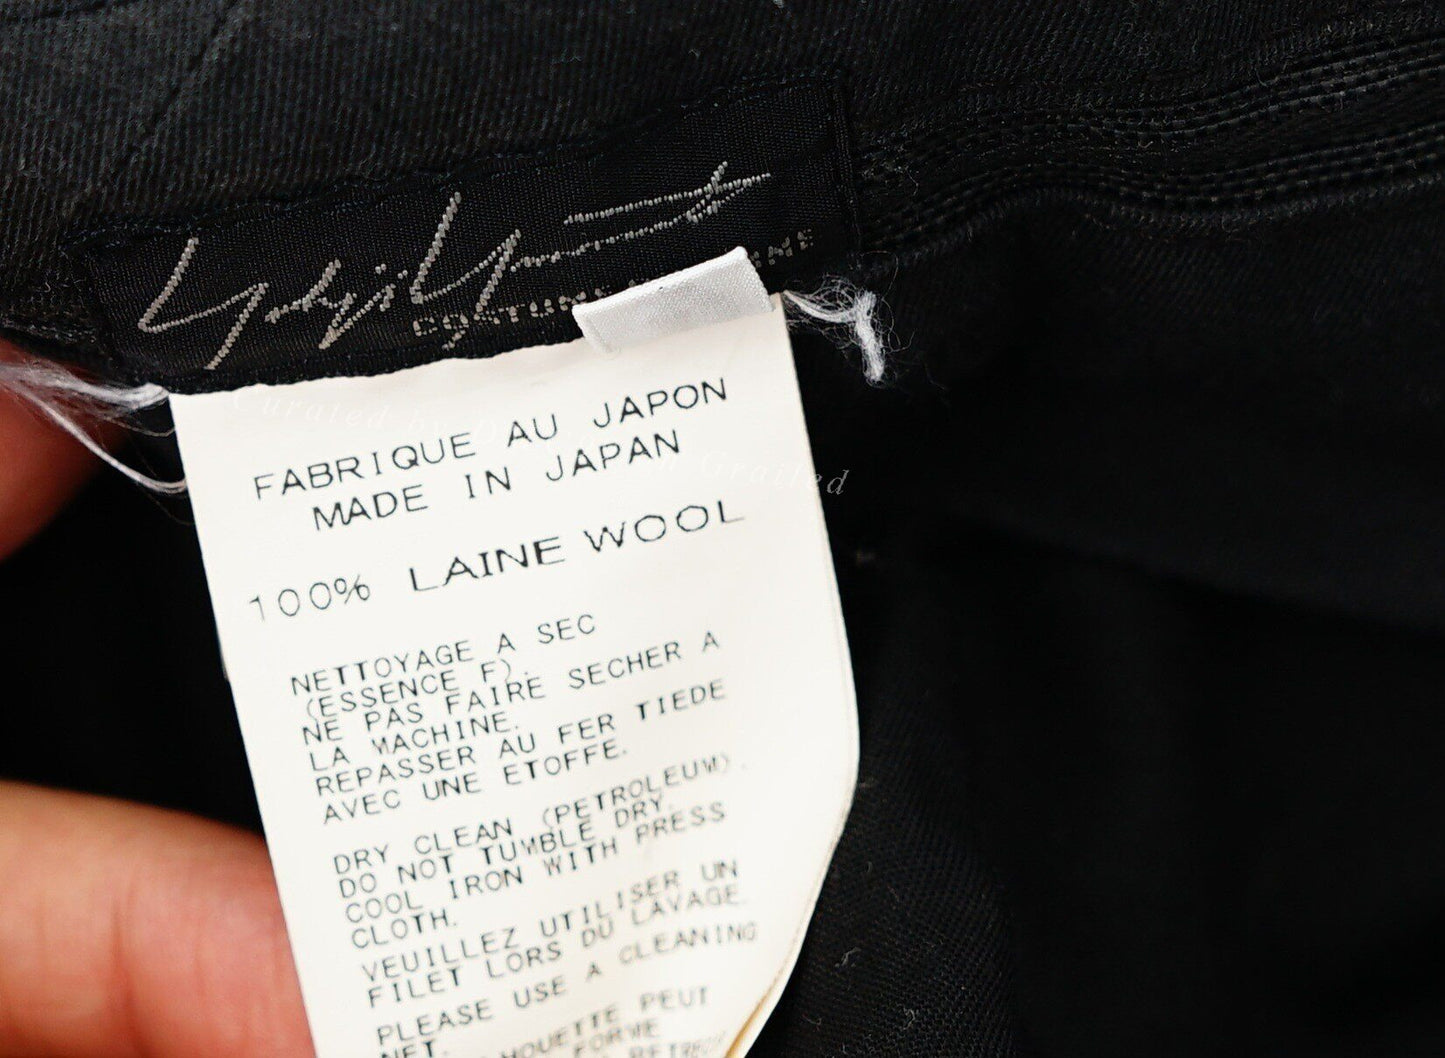 Yohji Yamamoto
COSTUME
FABRIQUE AU JAPON
MADE IN JAPAN
100% LAINE WOOL
NETTOYAGE A SEC
(ESSENCE F).
NE PAS FAIRE SECHER A
LA MACHINE.
REPASSER AU FER TIEDE
AVEC UNE ETOFFE.
DRY CLEAN (PETROLEUM).
DO NOT TUMBLE DRY.
COOL IRON WITH PRESS
CLOTH.
VEUILLEZ UTILISER UN
FILET LORS DU LAVAGE.
PLEASE USE A CLEANING
NET.
PEUT
FORME
Curated by
Grailed